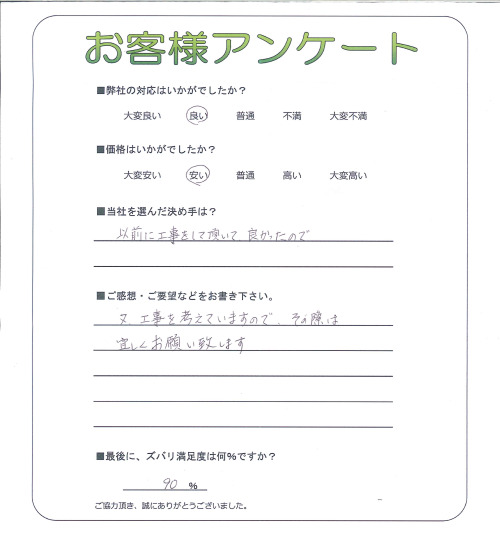 お客様アンケート
■弊社の対応はいかがでしたか？
大変良い　良い　普通　不満　大変不満
■価格はいかがでしたか？
大変安い　安い　普通　高い　大変高い
■当社を選んだ決め手は？
以前に工事をして頂いて、良かったので
■ご感想・ご要望などをお書き下さい。
又、工事を考えていますので、その際は
宜しくお願い致します
■最後に、ズバリ満足度は何％ですか？
90 %
ご協力頂き、誠にありがとうございました。